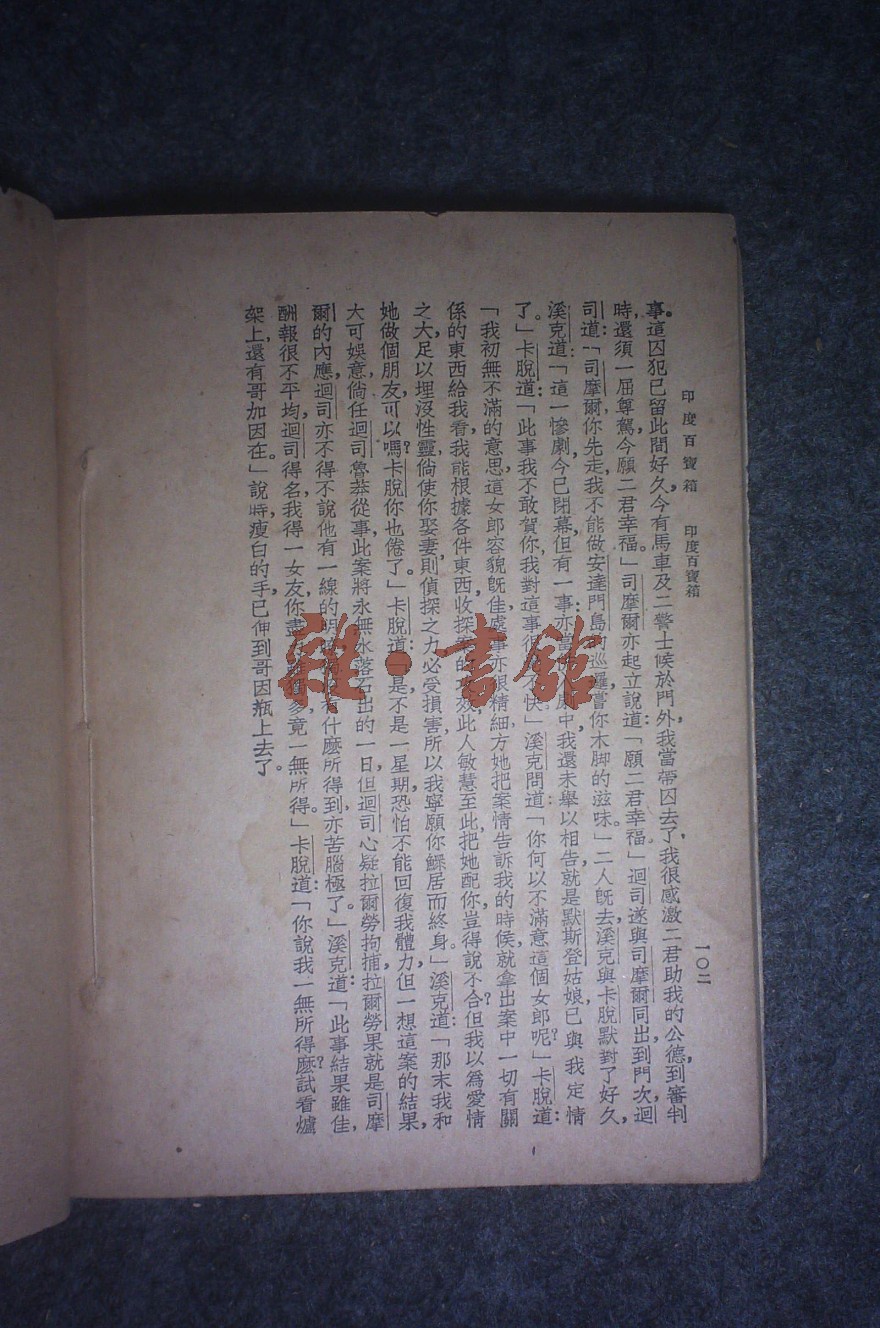 印度百寶箱　印度百寶箱　一〇二
事。這囚犯已留此間好久，今有馬車及二警士候於門外，我當帶囚去了，我很感激二君助我的公德，到審判
時，還須一屈尊駕，今願二君幸福。」司摩爾亦起立說道：「願二君幸福。」迴司遂與司摩爾同出，到門次，迴
司道：「司摩爾你先走，我不能做安達門島的巡邏，嘗你木脚的滋味。」二人旣去，溪克與卡脫默對了好久，
溪克道：「這一慘劇，今已閉幕，但有一事，亦當劇中，我還未舉以相告，就是默斯登姑娘已與我定情
了。」卡脫道：「此事我不敢賀你，我對這事很不快」溪克問道：「你何以不滿意這個女郎呢？」卡脫道：
「我初無不滿的意思，這女郎容貌旣佳，處事亦很精細，方她把案情告訴我的時候，就拿出案中一切有關
係的東西給我看，我能根據各件東西，收探案的效，此人敏慧至此，把她配你，豈得說不合？但我以爲愛情
之大，足以埋沒性靈，倘使你娶妻，則偵探之力，必受損害，所以我寧願你鰥居而終身。」溪克道：「那末我和
她做個朋友，可以嗎？卡脫你也倦了。」卡脫道：「是不是一星期，恐怕不能回復我體力，但一想這案的結果，
大可娛意，倘任迴司魯莽從事，此案將永無水落石出的一日，但迴司心疑拉爾勞，拘捕拉爾勞，果就是司摩
爾的內應，迴司亦不得不說他有一線的明　有什麼所得到，亦苦腦極了。」溪克道：「此事結果雖佳，
酬報很不平均，迴司得名，我得一女友，你盡　多，竟一無所得。」卡脫道：「你說我一無所得麽？試看爐
架上，還有哥加因在。」說時，瘦白的手，已伸到哥因瓶上去了。
雜·書館